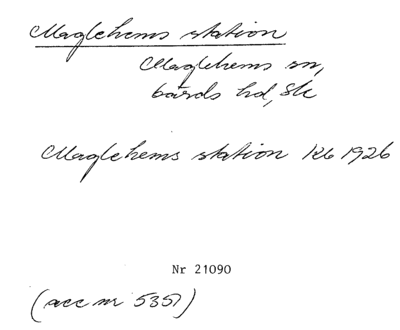 Maglehems station
Maglehems sn,
Gärds hd, Sk
Maglehems station Rb 1926
Nr 21090
(acc nr 535)